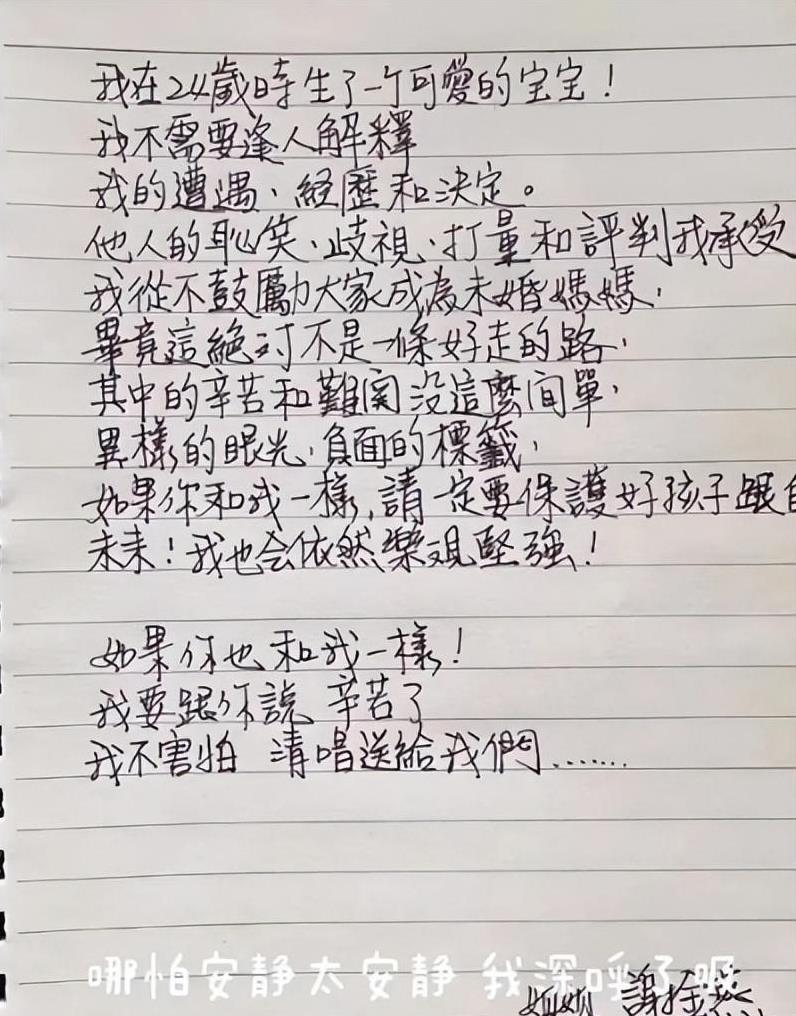 我在24歲時生了一个可愛的宝宝！
我不需要逢人解釋
我的遭遇、経歷和決定。
他人的恥笑、歧視、打量和評判我承受
我從不鼓勵大家成為未婚媽媽，
畢竟這絕对不是一條好走的路，
其中的辛苦和難関没這麼间單，
異樣的眼光，負面的標籤，
如果你和我一樣，請一定要保護好孩子跟自
未来！我也会依然樂观堅强！
如果你也和我一樣！
我要跟你說 辛苦了
我不害怕 清唱送給我們.......
哪怕安静太安静 我深呼了吸
謝